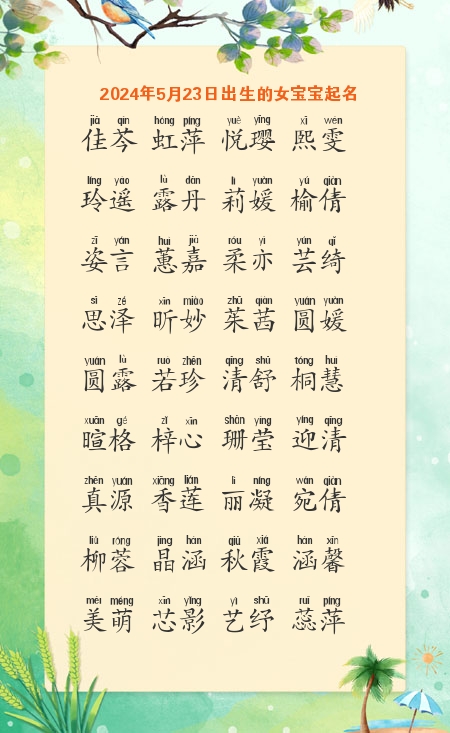 2024年5月23日出生的女宝宝起名
jiā qín hóng píng yuè yīng xī wén
佳芩 虹萍 悦璎 熙雯
líng yáo lù dān lì yuàn yú qiàn
玲遥 露丹 莉媛 榆倩
zī yán huì jiā róu yì yún qǐ
姿言 蕙嘉 柔亦 芸绮
sī zé xīn miào zhū qiàn yuán yuàn
思泽 昕妙 茱茜 圆媛
yuán lù ruò zhēn qīng shū tóng huì
圆露 若珍 清舒 桐慧
xuān gé zǐ xīn shān yíng yíng qīng
暄格 梓心 珊莹 迎清
zhēn yuán xiāng lián lì níng wǎn qiàn
真源 香莲 丽凝 宛倩
liǔ róng jīng hán qiū xiá hán xīn
柳蓉 晶涵 秋霞 涵馨
měi méng xīn yǐng yì shū ruǐ píng
美萌 芯影 艺纾 蕊萍